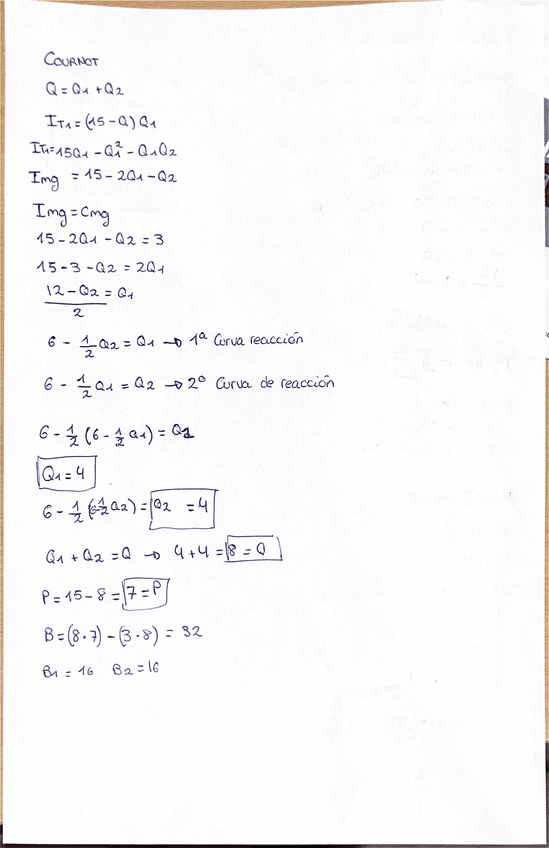 COURNOT
Q = Q1 + Q2
IT1 = (15 - Q) Q1
IT1 = 15Q1 - Q1² - Q1Q2
Img = 15 - 2Q1 - Q2
Img = Cmg
15 - 2Q1 - Q2 = 3
15 - 3 - Q2 = 2Q1
12 - Q2 / 2 = Q1
6 - 1/2 Q2 = Q1 → 1ª Curva reacción
6 - 1/2 Q1 = Q2 → 2º Curva de reacción
6 - 1/2 (6 - 1/2 Q1) = Q1
Q1 = 4
6 - 1/2 (6 - 1/2 Q2) = Q2 = 4
Q1 + Q2 = Q → 4 + 4 = 8 = Q
P = 15 - 8 = 7 = P
B = (8·7) - (3·8) = 32
B1 = 16 B2 = 16